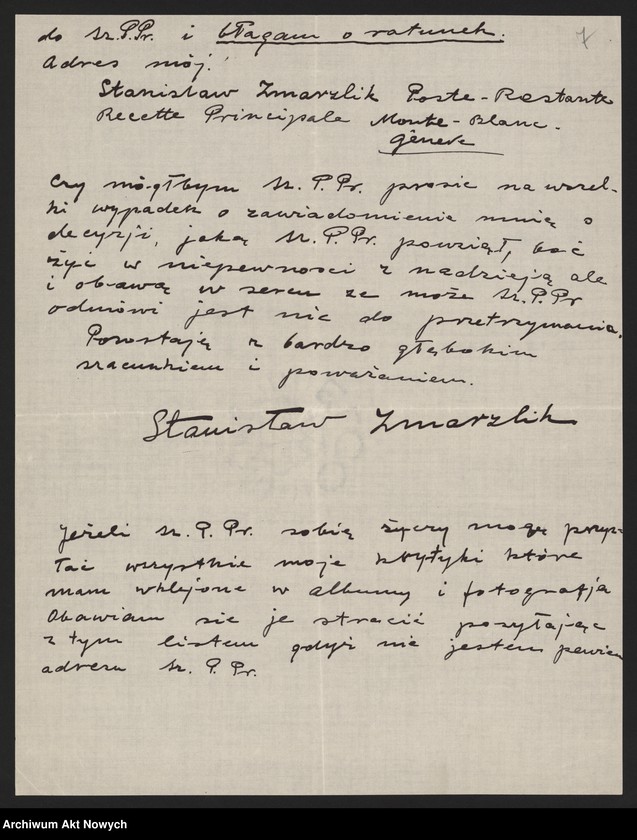 7
do Sz.P.Pr. i błagam o ratunek.
Adres mój:
Stanisław Zmarzlik Poste-Restante
Recette Principale Monte-Blanc-
Génève
Czy mógłbym Sz. P. Pr. prosić na wszel-
ki wypadek o zawiadomienie mnię o
decyzji, jaką Sz. P. Pr. powziął, bać
żyć w niepewności z nadzieją ale
i obawą w sercu ze może Sz. P. Pr
odmówi jest nie do przetrzymania.
Pozostają z bardzo głębokim
szacunkiem i poważaniem.
Stanisław Zmarzlik
Jeżeli Sz. P. Pr. sobię życzy mogę przys-
łać wszystkie moje krytyki które
mam wklejone w albumy i fotografja
Obawiam się je stracić posyłając
z tym listem gdyż nie jestem pewien
adresu Sz. P. Pr.
Archiwum Akt Nowych